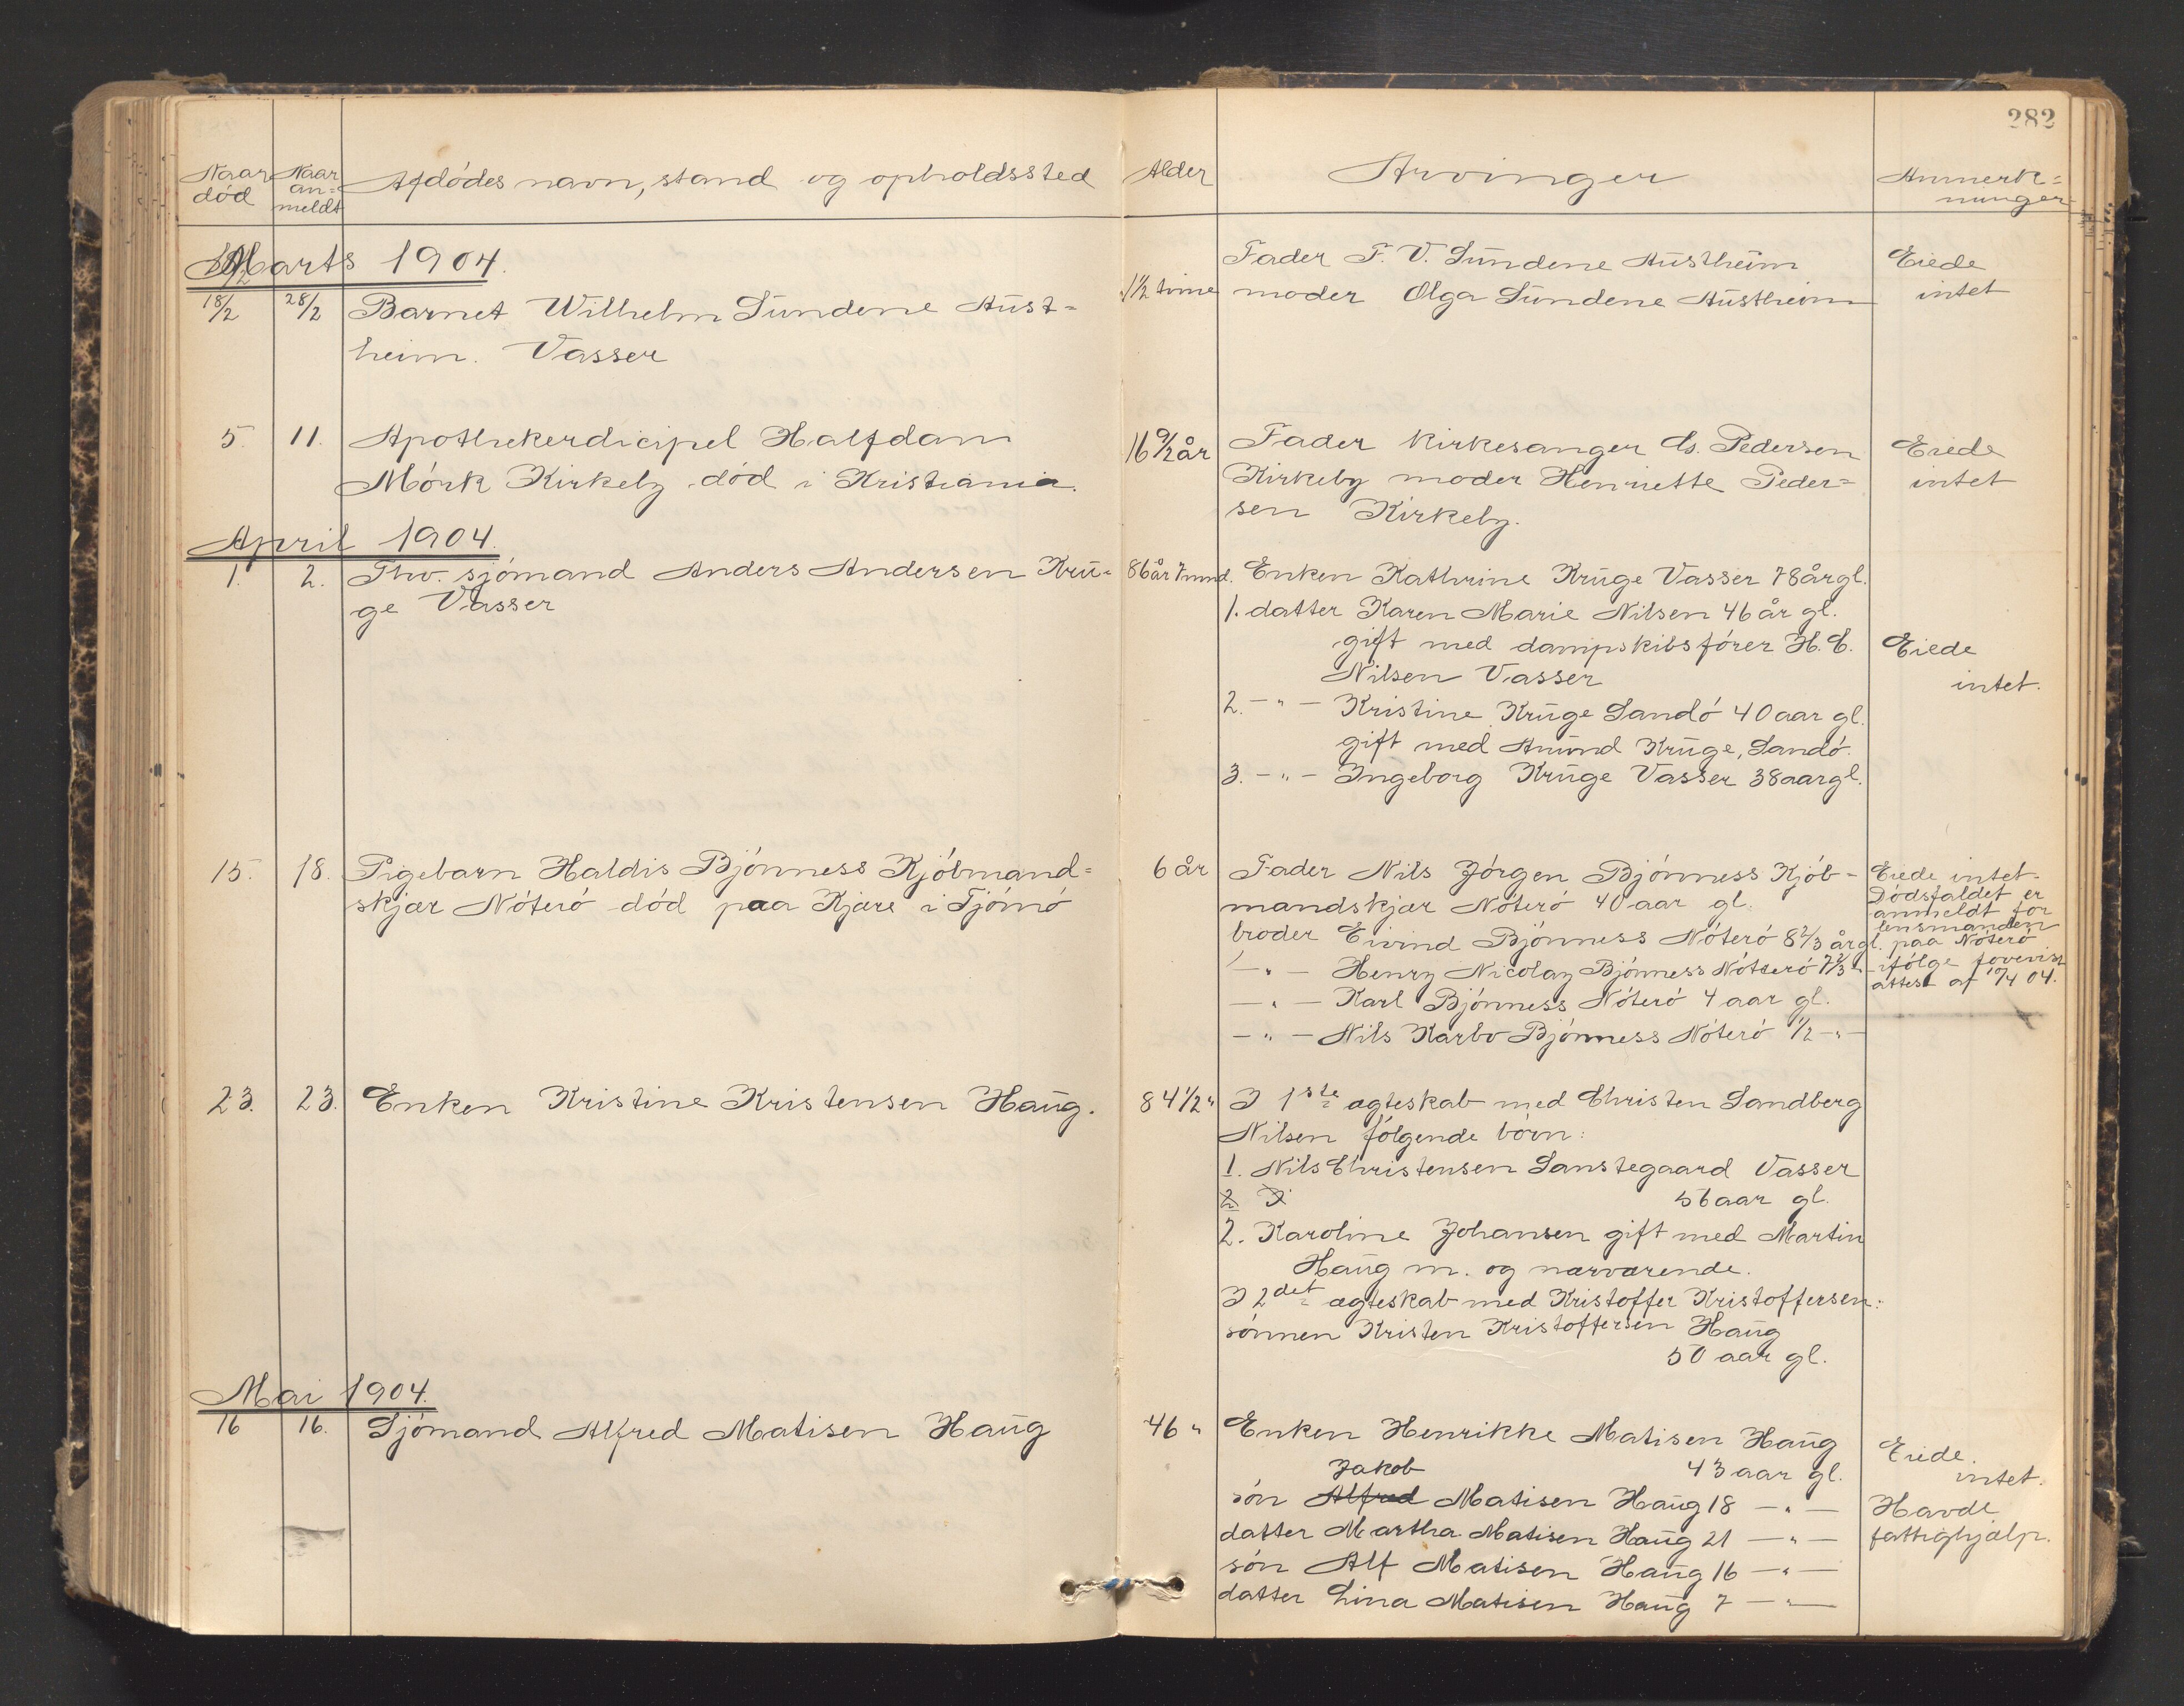 282
Naar død
Naar an=meldt
Afdødes navn, stand og opholdssted
Alder
Arvinger
Anmerk=
ninger
Marts 1904.
18/2 28/2 Barnet Wilhelm Sündene Aüst=
heim. Vasser
1 1/2 time
Fader F. V. Sündene Aüstheim
moder Olga Sündene Aüstheim
Eiede
intet
5. 11. Apothekerdicipel Halfdan
Mørk Kirkeby død i Kristiania.
16 9/12 år
Fader kirkesanger Chs. Pedersen
Kirkeby moder Henriette Peder=
sen Kirkeby.
Eiede
intet
April 1904.
1. 2. Fhv. sjømand Anders Andersen Krü=
ge Vasser
86 år 7 mnd.
Enken Kathrine Krüge Vasser 78 år gl.
1. datter Karen Marie Nilsen 46 år gl.
gift med dampskibsfører H. C.
Nilsen Vasser
2. - " - Kristine Krüge Sandø 40 aar gl.
gift med Amünd Krüge, Sandø.
3. - " - Ingeborg Krüge Vasser 38 aar gl.
Eiede
intet.
15. 18. Pigebarn Haldis Bjønness Kjøbmand=
skjær Nøterø død paa Kjære i Tjømø
6 år
Fader Nils Jørgen Bjønness Kjøb-
mandskjær Nøterø 40 aar gl.
broder Eivind Bjønness Nøterø 8 2/3 år gl.
- " - Henry Nicolay Bjønness Nøtterø 7 2/3 " -
- " - Karl Bjønness Nøterø 4 aar gl.
- " - Nils Karbo Bjønness Nøterø 1/2 - " -
Eiede intet.
Dødsfaldet er
anmeldt for
lensmanden
paa Nøterø
ifølge forevist
attest af 17/4 04.
23. 23. Enken Kristine Kristensen Haüg.
84 1/2 "
I 1ste ægteskab med Christen Sandberg
Nilsen følgende børn:
1. Nils Christensen Sanstegaard Vasser
2. I 56 aar gl.
2. Karoline Johansen gift med Martin
Haüg m. og nærværende.
I 2det ægteskab med Kristoffer Kristoffersen:
sønnen Kristen Kristoffersen Haüg
50 aar gl.
Mai 1904.
16 16. Sjømand Alfred Matisen Haüg
46 "
Enken Henrikke Matisen Haüg
43 aar gl.
Jakob
søn Alfred Matisen Haüg 18 - " -
datter Martha Matisen Haüg 21 - " -
søn Alf Matisen Haüg 16 - " -
datter Lina Matisen Haüg 7 - " -
Eiede
intet.
Havde
fattighjælp.